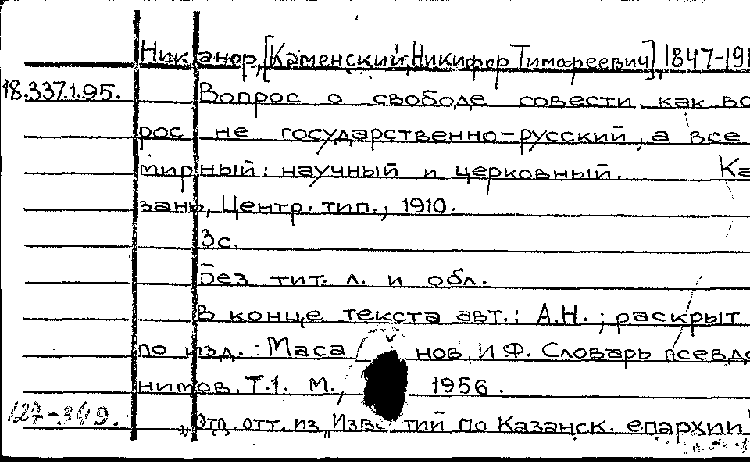 Никанор, [Каменский, Никифор Тимофеевич], 1847-191
18.337.1.95. Вопрос о свободе совести, как во
рос не государственно-русский, а все
мирный: научный и церковный. Ка
зань, Центр. тип., 1910.
3с.
Без тит. л. и обл.
В конце текста авт.: А.Н.; раскрыт
по изд.: Маса нов, И.Ф. Словарь псевдо
нимов. Т.1. М., 1956.
127-349. Отд. отт. из „Известий по Казанск. епархии